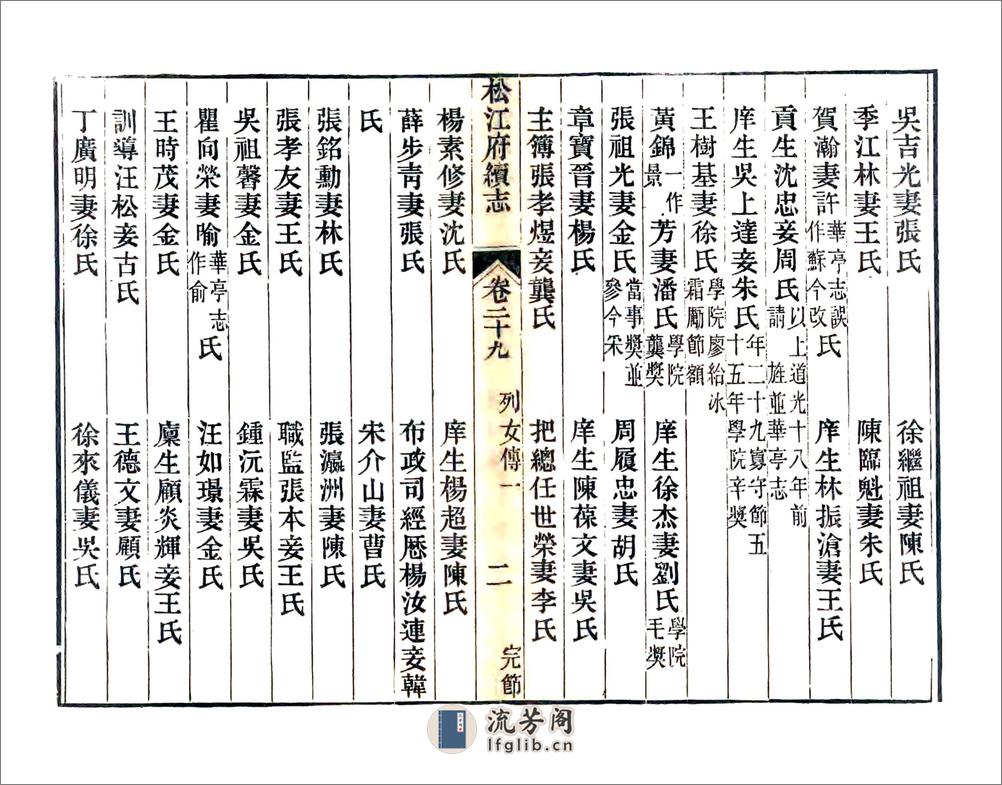 吳吉光妻張氏 徐繼祖妻陳氏
季江林妻王氏 陳臨魁妻朱氏
賀瀚妻許華亭志誤作蘇今改氏 庠生林振滄妻王氏
貢生沈忠妾周氏以上道光十八年前請旌並華亭志
庠生吳上達妾朱氏年二十九寡守節五十五年學院辛獎
王樹基妻徐氏學院廖給冰霜勵節額
黃錦一作景芳妻潘氏學院龔獎 庠生徐杰妻劉氏學院毛獎
張祖光妻金氏當事獎並參今采 周履忠妻胡氏
章寶晉妻楊氏 庠生陳葆文妻吳氏
主簿張孝煜妾龔氏 把總任世榮妻李氏
松江府續志 卷二十九 列女傳一 二 完節
楊素修妻沈氏 庠生楊超妻陳氏
薛步青妻張氏 布政司經厯楊汝連妾韓
氏 宋介山妻曹氏
張銘勳妻林氏 張瀛洲妻陳氏
張孝友妻王氏 職監張本妾王氏
吳祖馨妻金氏 鍾沅霖妻吳氏
瞿向榮妻喻華亭志作俞氏 汪如璟妻金氏
王時茂妻金氏 廩生顧炎輝妾王氏
訓導汪松妾古氏 王德文妻顧氏
丁廣明妻徐氏 徐來儀妻吳氏
流芳阁
lfglib.cn